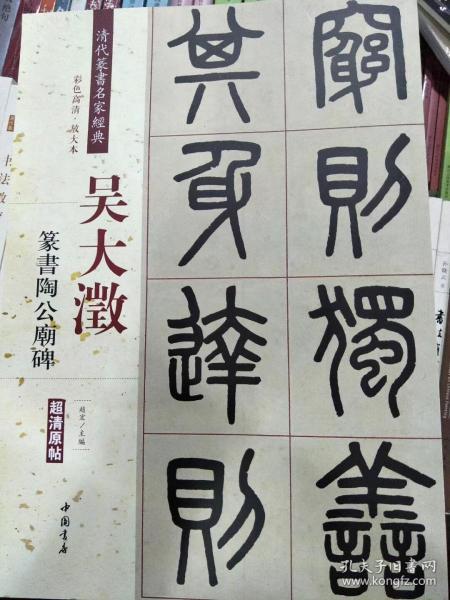 清代篆書名家經典
彩色高清·放大本
吴大澂
篆書陶公廟碑
超清原帖
趙宏/主編
中国書店
窮則獨善
其身達則
孔夫子旧书网
www.kongfz.com